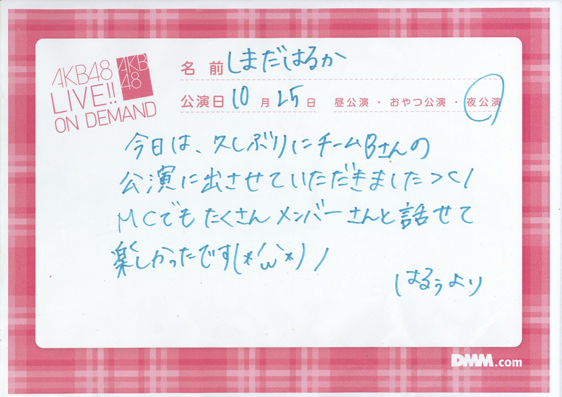 AKB48
LIVE!!
ON DEMAND
AKB
48
名前 しまだはるか
公演日 10月25日 昼公演・おやつ公演・夜公演
今日は、久しぶりにチームBさんの
公演に出させていただきました><!
MCでもたくさんメンバーさんと話せて
楽しかったです(*'ω'*)ノ
はるぅより
DMM.com